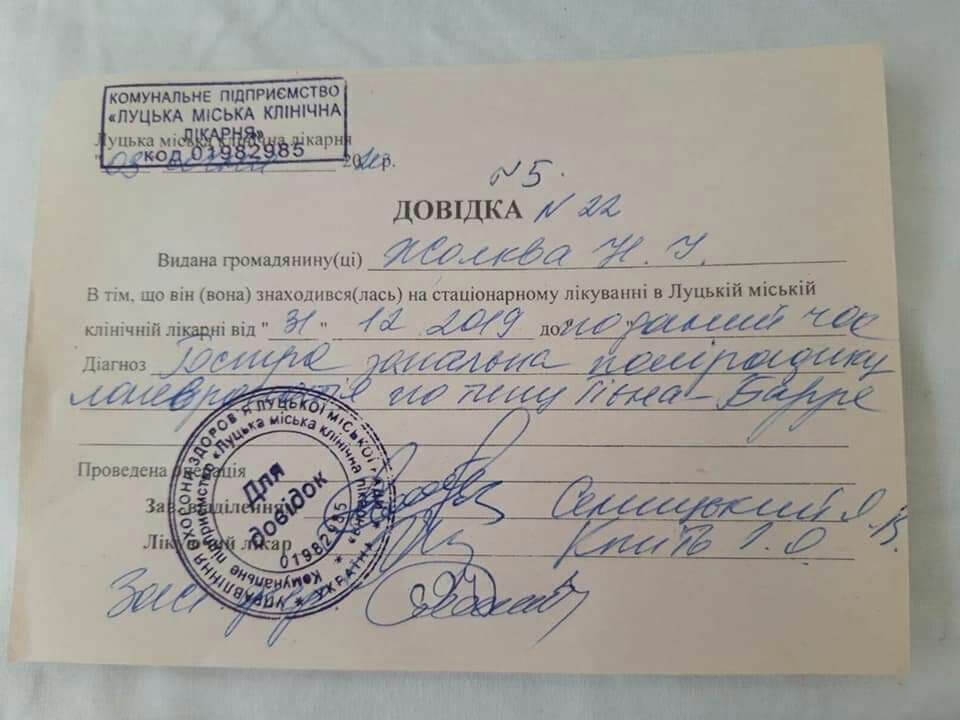 КОМУНАЛЬНЕ ПІДПРИЄМСТВО
«ЛУЦЬКА МІСЬКА КЛІНІЧНА
ЛІКАРНЯ»
КОД 01982985
Луцька міська клінічна лікарня
"03" січня 20 р.
N 5.
ДОВІДКА N 22
Видана громадянину(ці) Жолква Н. І.
В тім, що він (вона) знаходився(лась) на стаціонарному лікуванні в Луцькій міській
клінічній лікарні від "31" 12 2019 до " даний час
Діагноз Гостра запальна полірадику
лоневропатія по типу Гієна-Барре
Проведена операція
Зав. відділення
Лікуючий лікар
Для
довідок
01982985
УПРАВЛІННЯ ОХОРОНИ ЗДОРОВ'Я ЛУЦЬКОЇ МІСЬКОЇ РАДИ
Комунальне підприємство «Луцька міська клінічна лікарня»
УКРАЇНА